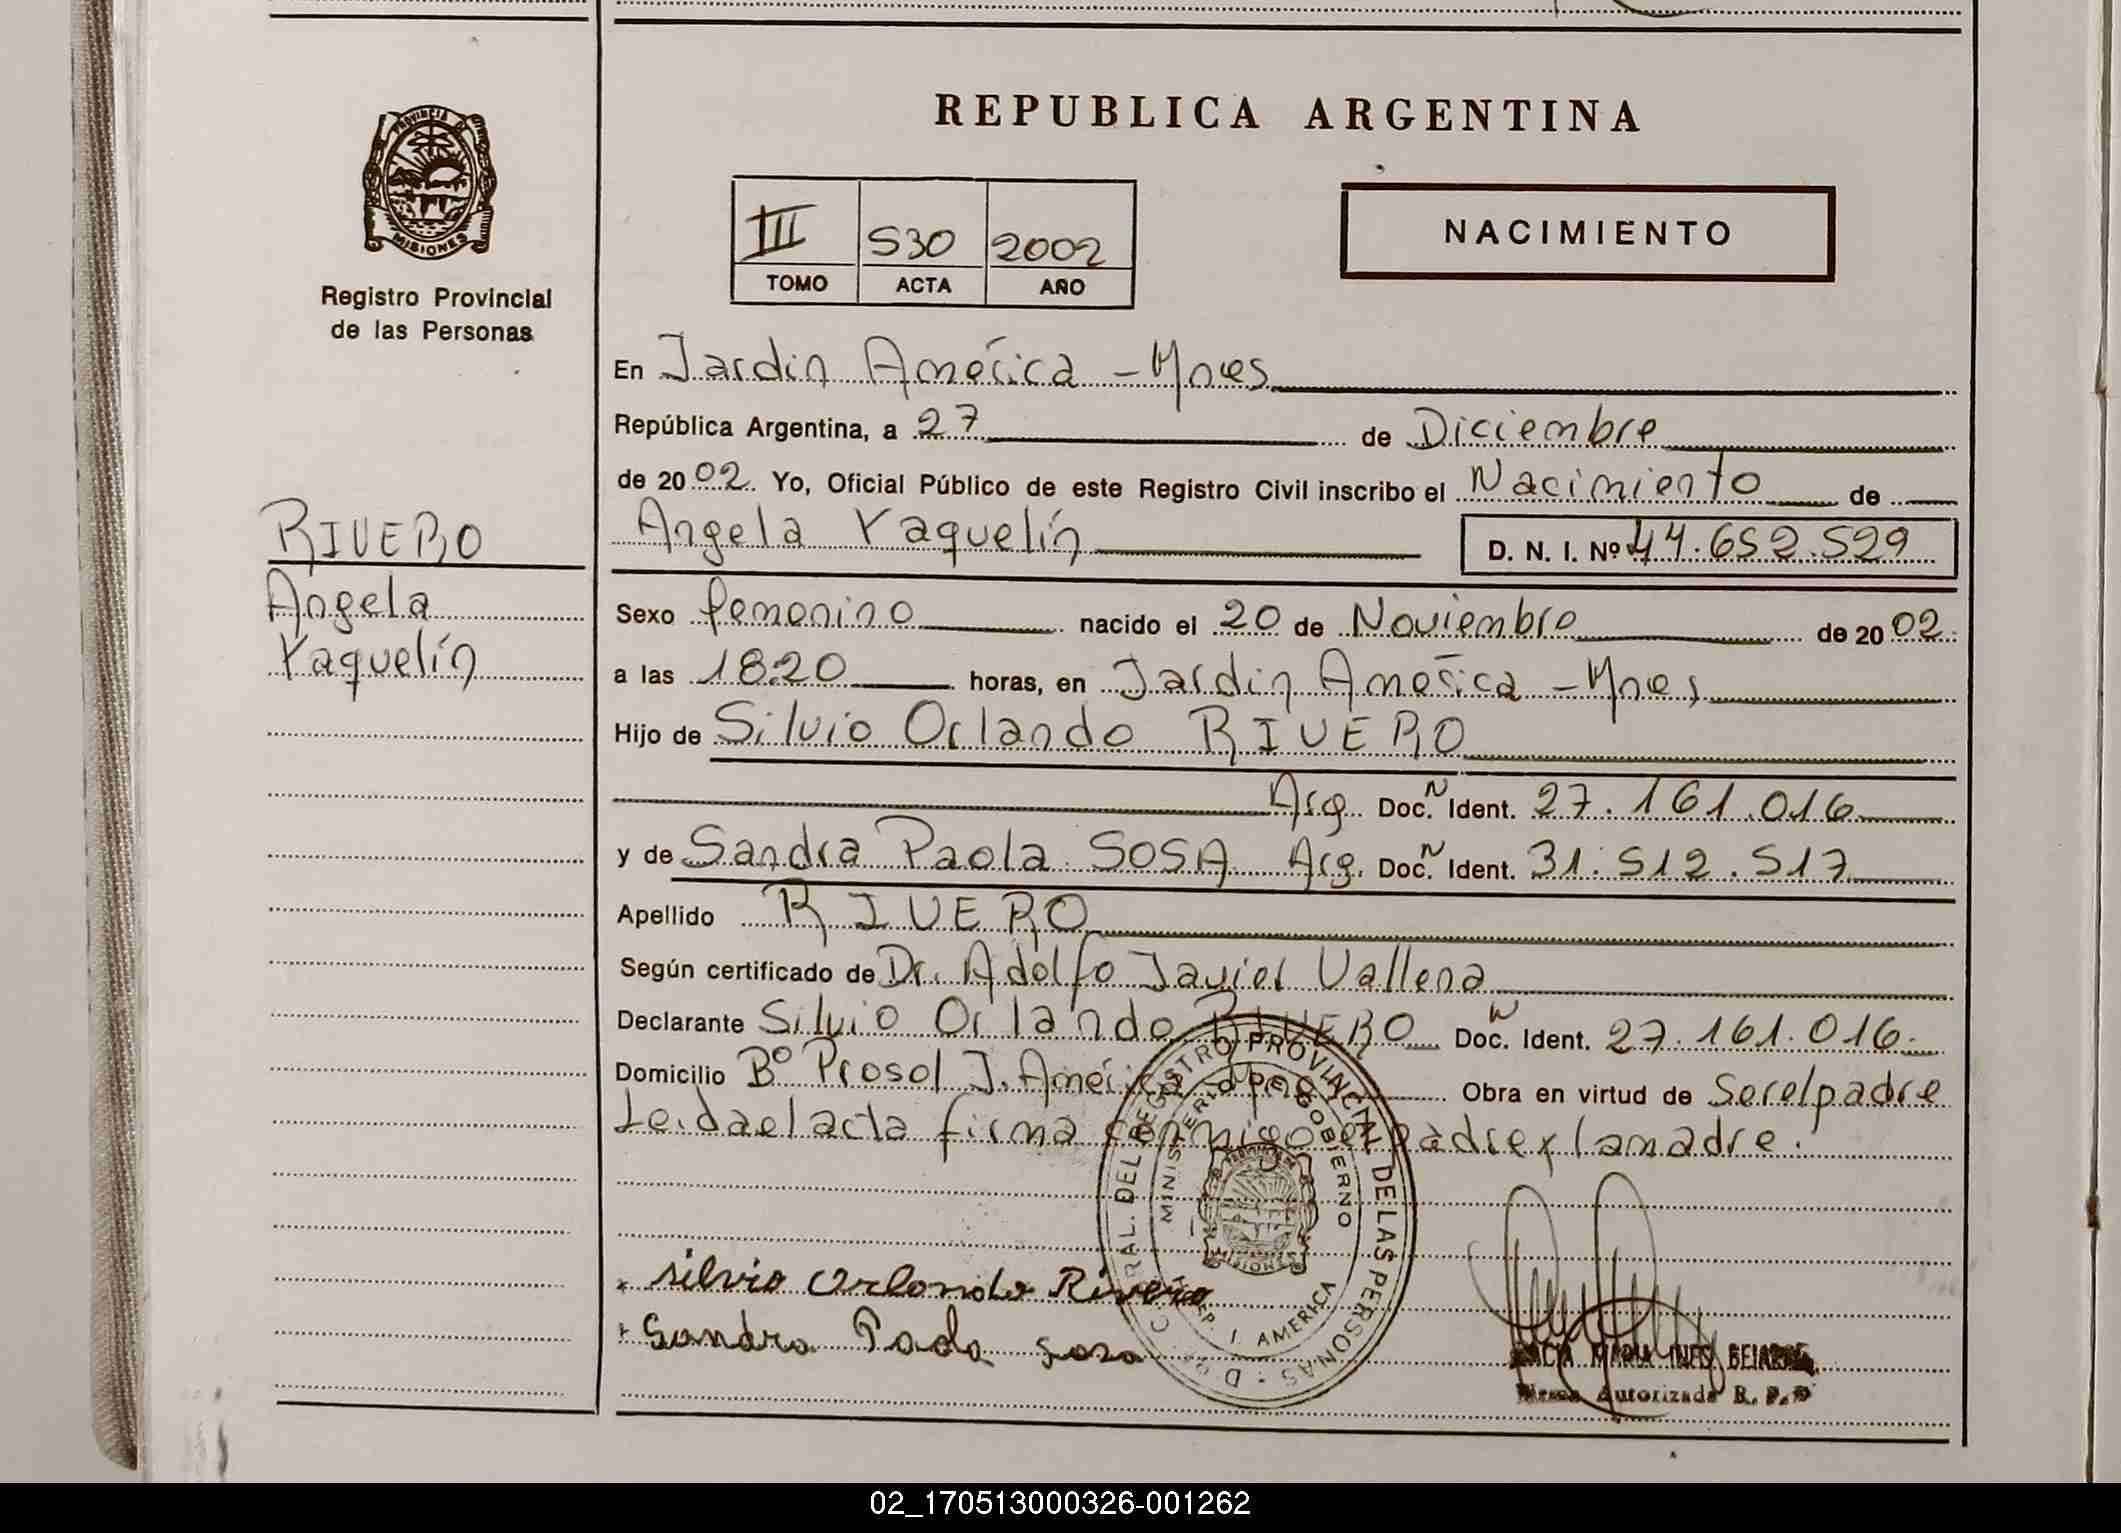 REPUBLICA ARGENTINA
PROVINCIA DE
MISIONES
Registro Provincial
de las Personas
III 530 2002
TOMO ACTA AÑO
NACIMIENTO
En Jardin América - Mnes
República Argentina, a 27 de Diciembre
de 2002. Yo, Oficial Público de este Registro Civil inscribo el Nacimiento de
RIVERO
Angela
Yaquelín
Angela Yaquelín D. N. I. Nº 44.652.529
Sexo femenino nacido el 20 de Noviembre de 2002
a las 18:20 horas, en Jardin América - Mnes
Hijo de Silvio Orlando RIVERO
Arg. Doc. N Ident. 27.161.016
y de Sandra Paola SOSA Arg. Doc. N Ident. 31.512.517
Apellido RIVERO
Según certificado de Dr. Adolfo Javier Vallena
Declarante Silvio Orlando RIVERO Doc. N Ident. 27.161.016
Domicilio Bº Prosol J. América Obra en virtud de Ser el padre
Leida el acta firma conmigo el padre y la madre.
DEL REGISTRO PROVINCIAL DE LAS PERSONAS
MINISTERIO DE GOBIERNO
MISIONES
AMERICA
Silvio Orlando Rivero
Sandra Paola Sosa
MARIA INES
Autorizada R. P. P
02_170513000326-001262